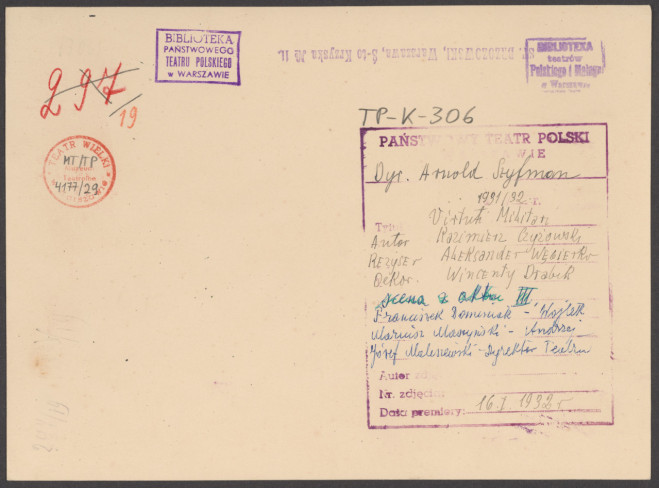 BIBLIOTEKA
PAŃSTWOWEGO
TEATRU POLSKIEGO
w WARSZAWIE
St. BRZOZOWSKI, Warszawa, S-to Krzyska № 11.
BIBLIOTEKA
teatrów
Polskiego i Małego
w Warszawie
297
/19
TEATR WIELKI
MT/TP
4177/29
TP-K-306
PAŃSTWOWY TEATR POLSKI
WIE
Dyr. Arnold Szyfman
1931/32 r.
Virtuti Militari
Autor Kazimierz Czyżowski
Reżyser Aleksander Węgierko
Dekor. Wincenty Drabik
scena z aktu III,
Franciszek Dominiak - Wojtek
Mariusz Maszyński - Andrzej
Józef Maliszewski - Dyrektor Teatru
Autor
Nr. zdjęcia:
Data premiery: 16.I.1932 r